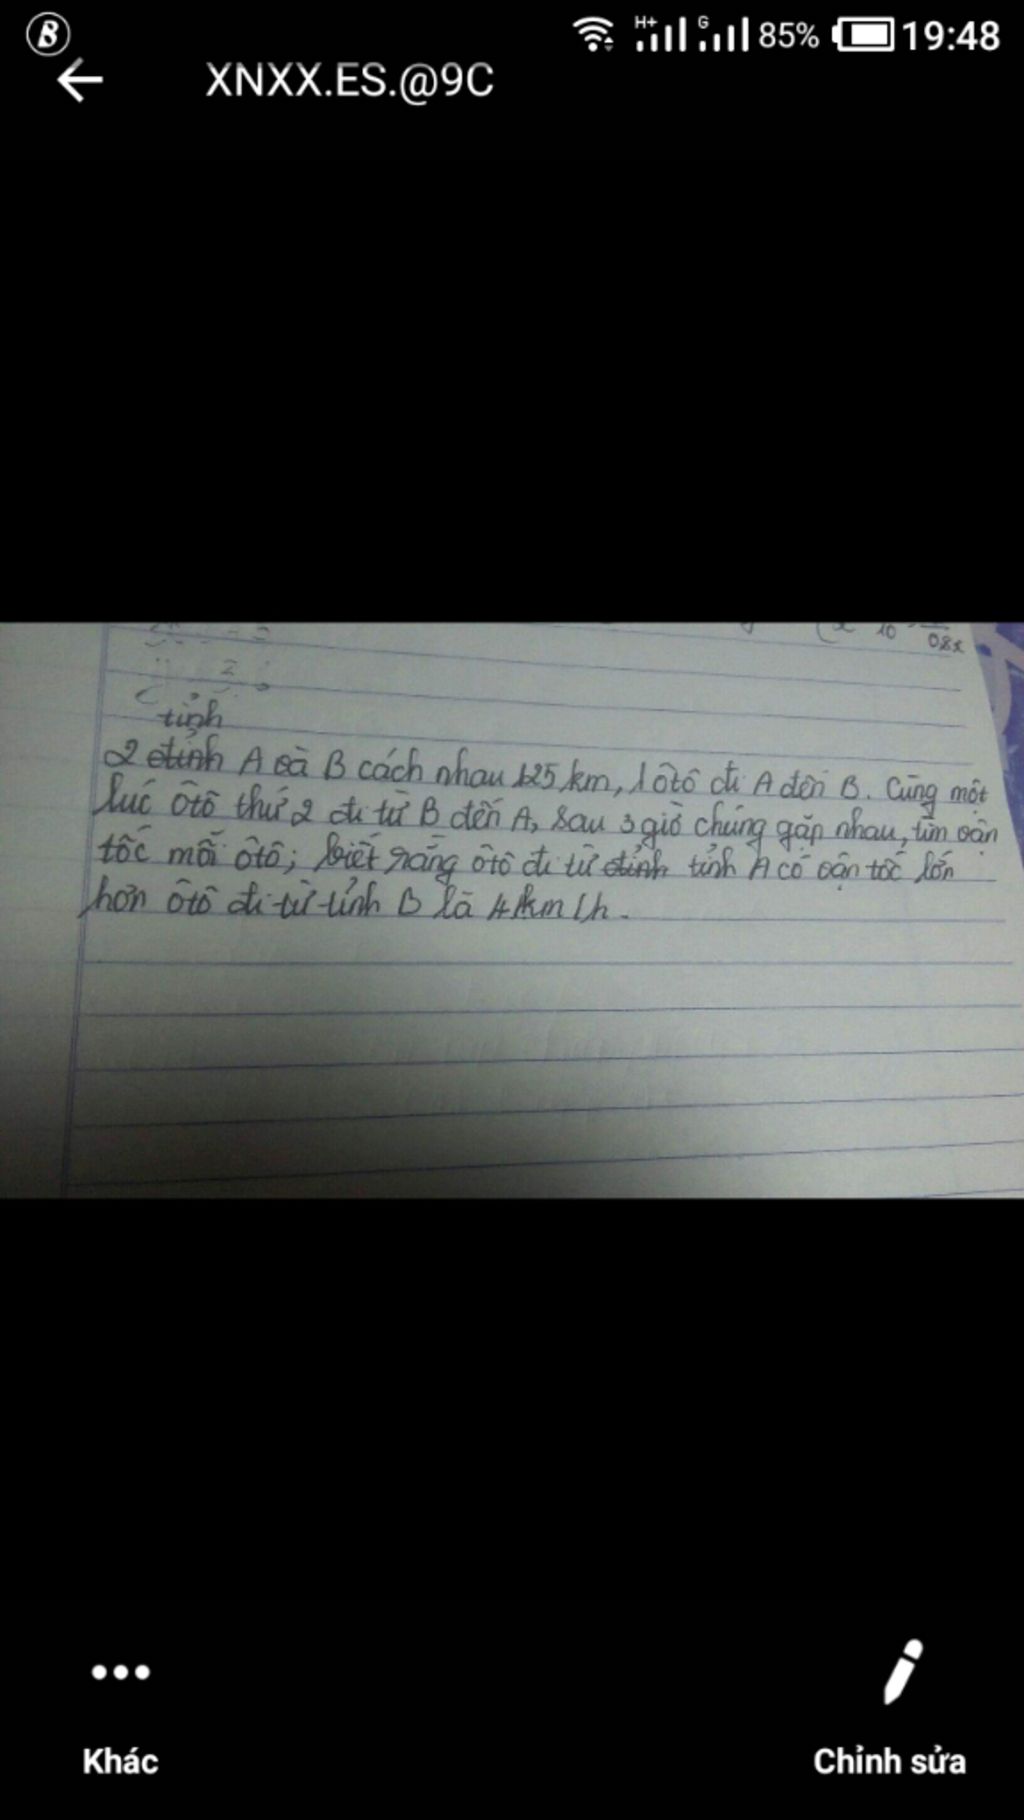 B
H+ G 85% 19:48
XNXX.ES.@9C
08x
tỉnh
2 tỉnh A và B cách nhau 125 km, 1 ôtô đi A đến B. Cùng một
lúc ôtô thứ 2 đi từ B đến A, sau 3 giờ chúng gặp nhau, tìm vận
tốc mỗi ôtô; biết rằng ôtô đi từ tỉnh A có vận tốc lớn
hơn ôtô đi từ tỉnh B là 4km/h.
Khác
Chỉnh sửa